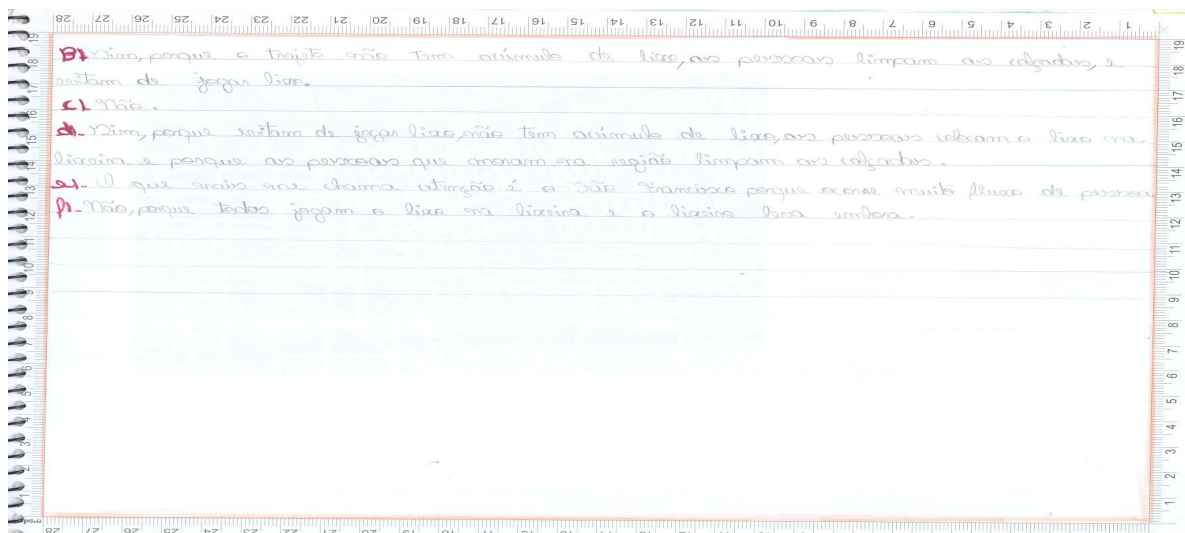 28 27 26 25 24 23 22 21 20 19 18 17 16 15 14 13 12 11 10 9 8 7 6 5 4 3 2 1
B) Sim, porque o trajeto não tem acúmulo de lixo, as pessoas limpam as calçadas, e
evitam de jogar lixo.
c) Não.
d- Sim, porque evitam de jogar lixo, não tem acúmulo de lixo, as pessoas colocam o lixo na
lixeira e porque as pessoas que moram na região limpam as calçadas.
e)- O que mais me chama atenção é o São Francisco porque ocorre muito fluxo de pessoa
f)- Não, porque todos jogam o lixo na lixeira e o lixeiro leva embora.